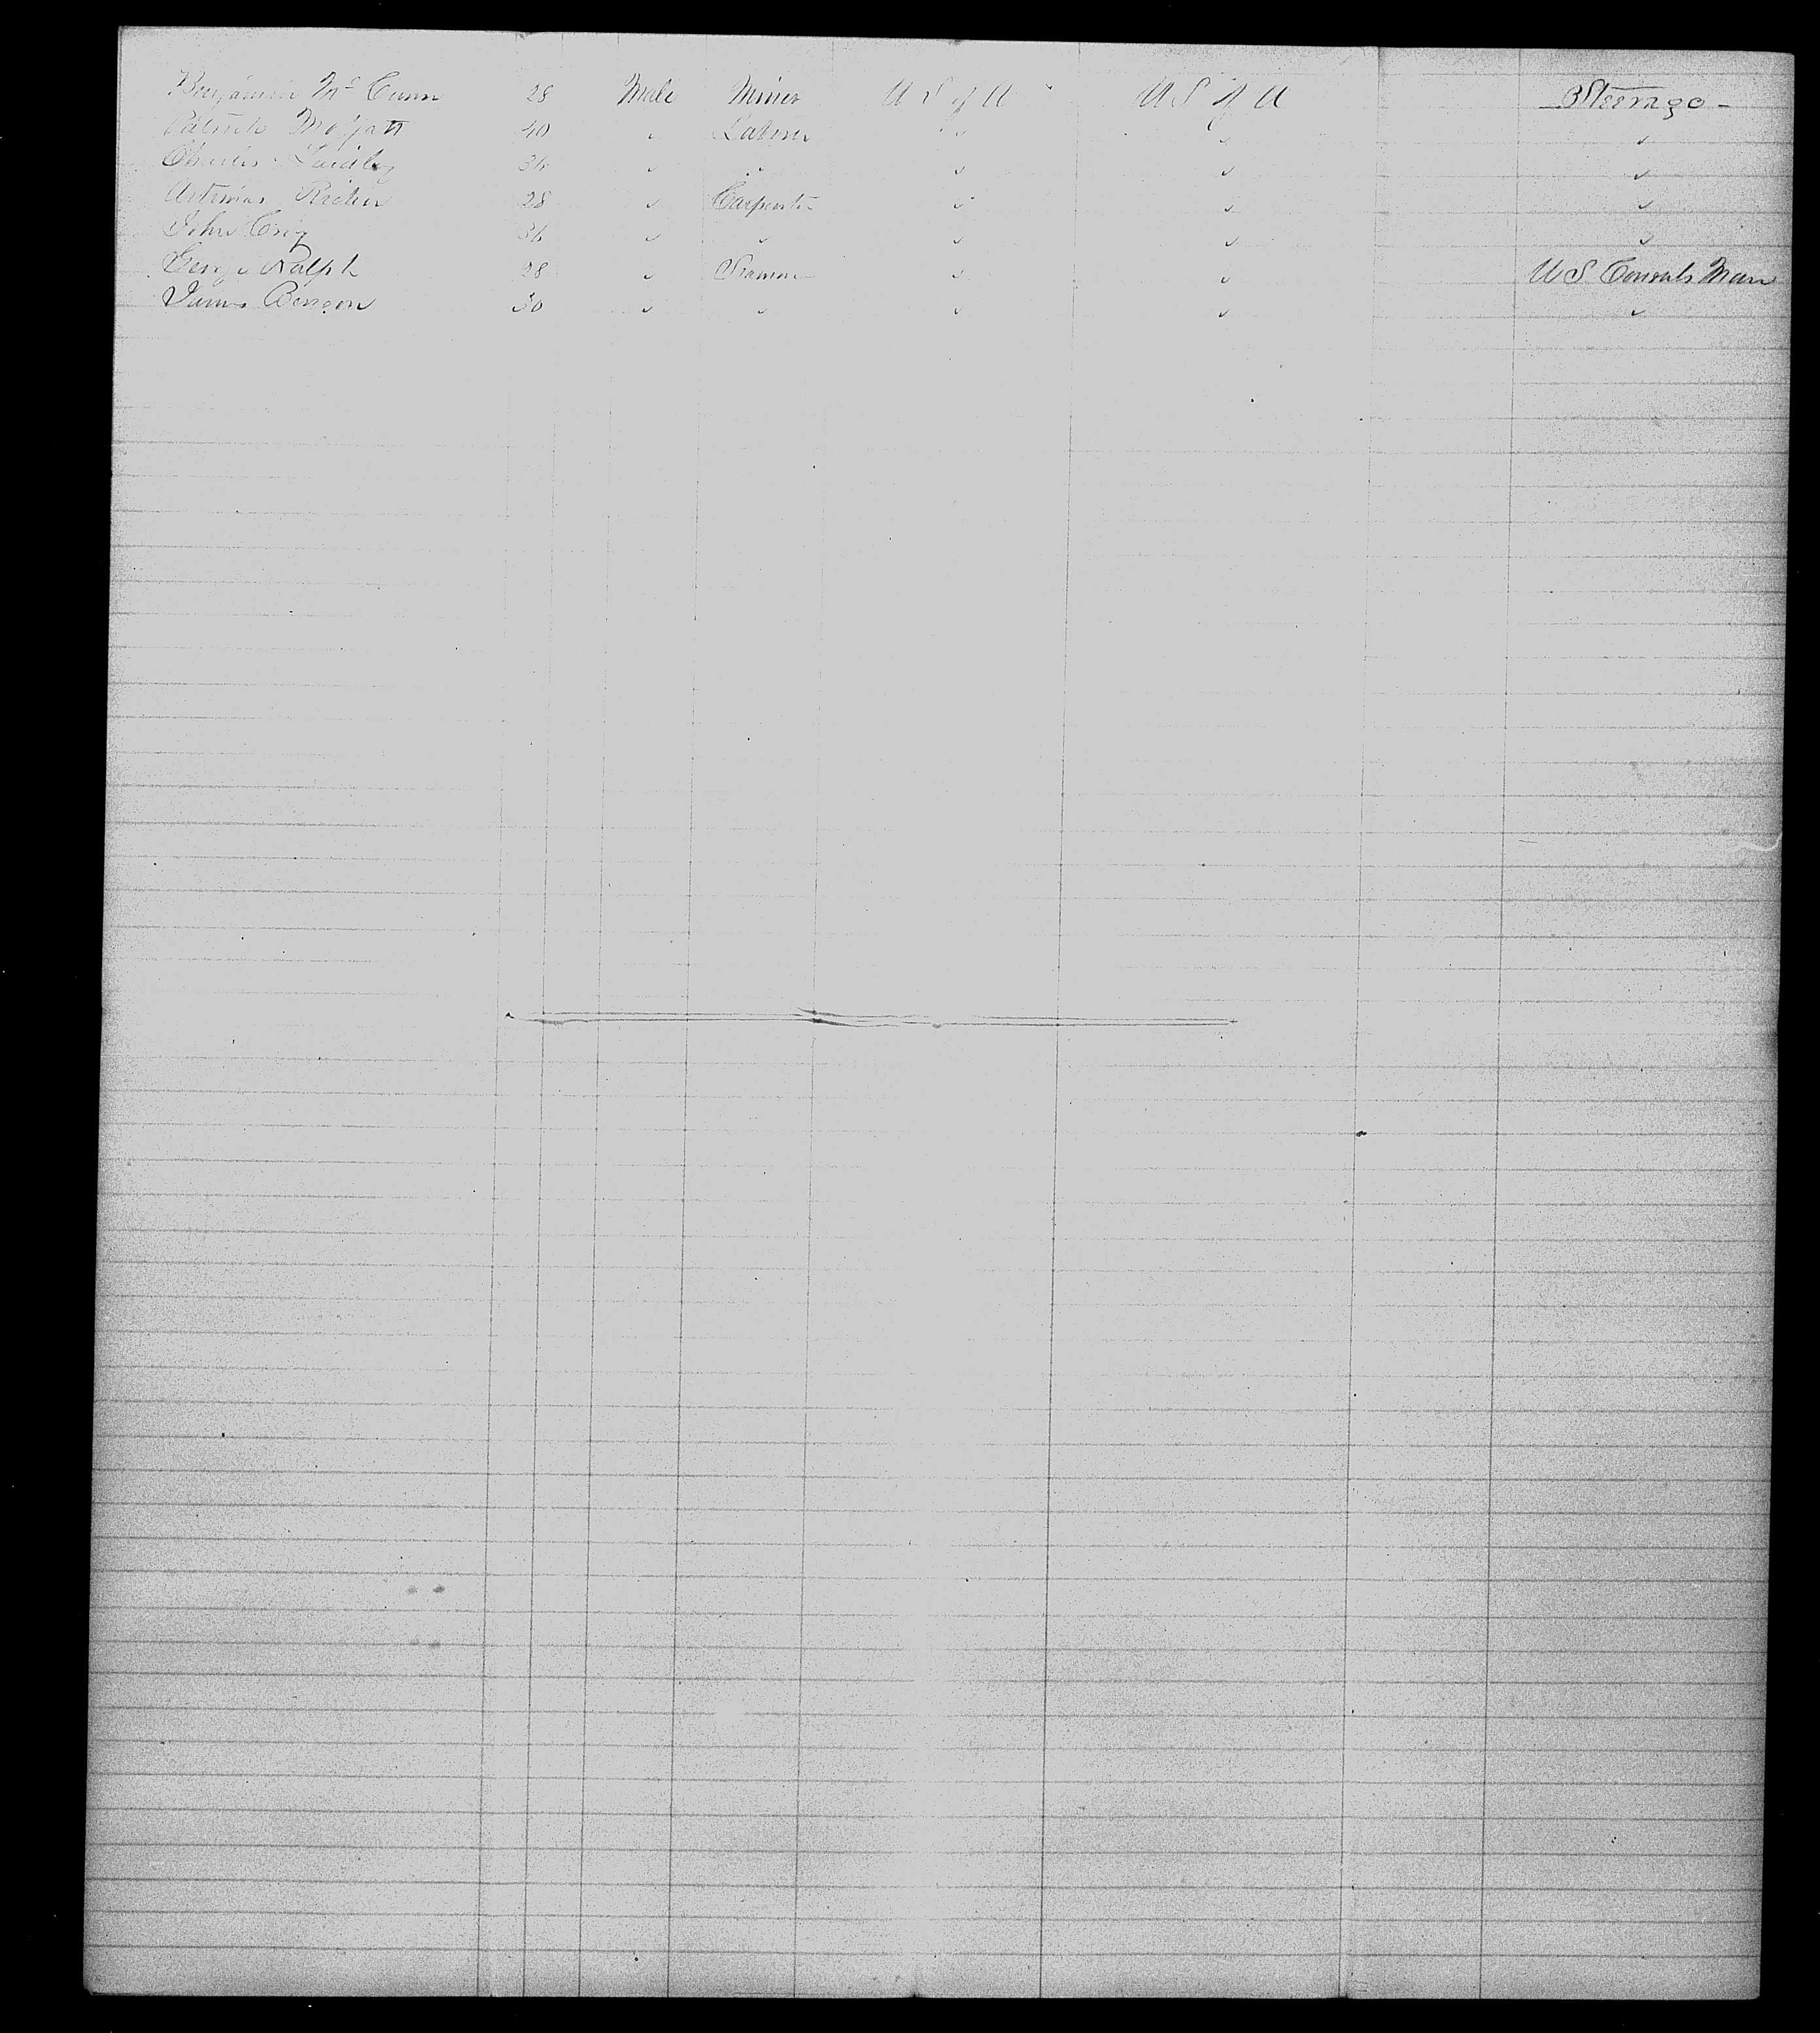 Benjamin McCunn 28 Male Miner U S of A U S of A Steerage
Patrick Moffatt 40 " Laborer " " "
Charles 36 " " " " "
28 " Carpenter " " "
John 36 " " " " "
George Ralph 28 " Seaman " " U S Consuls Man
James Benson 30 " " " " "